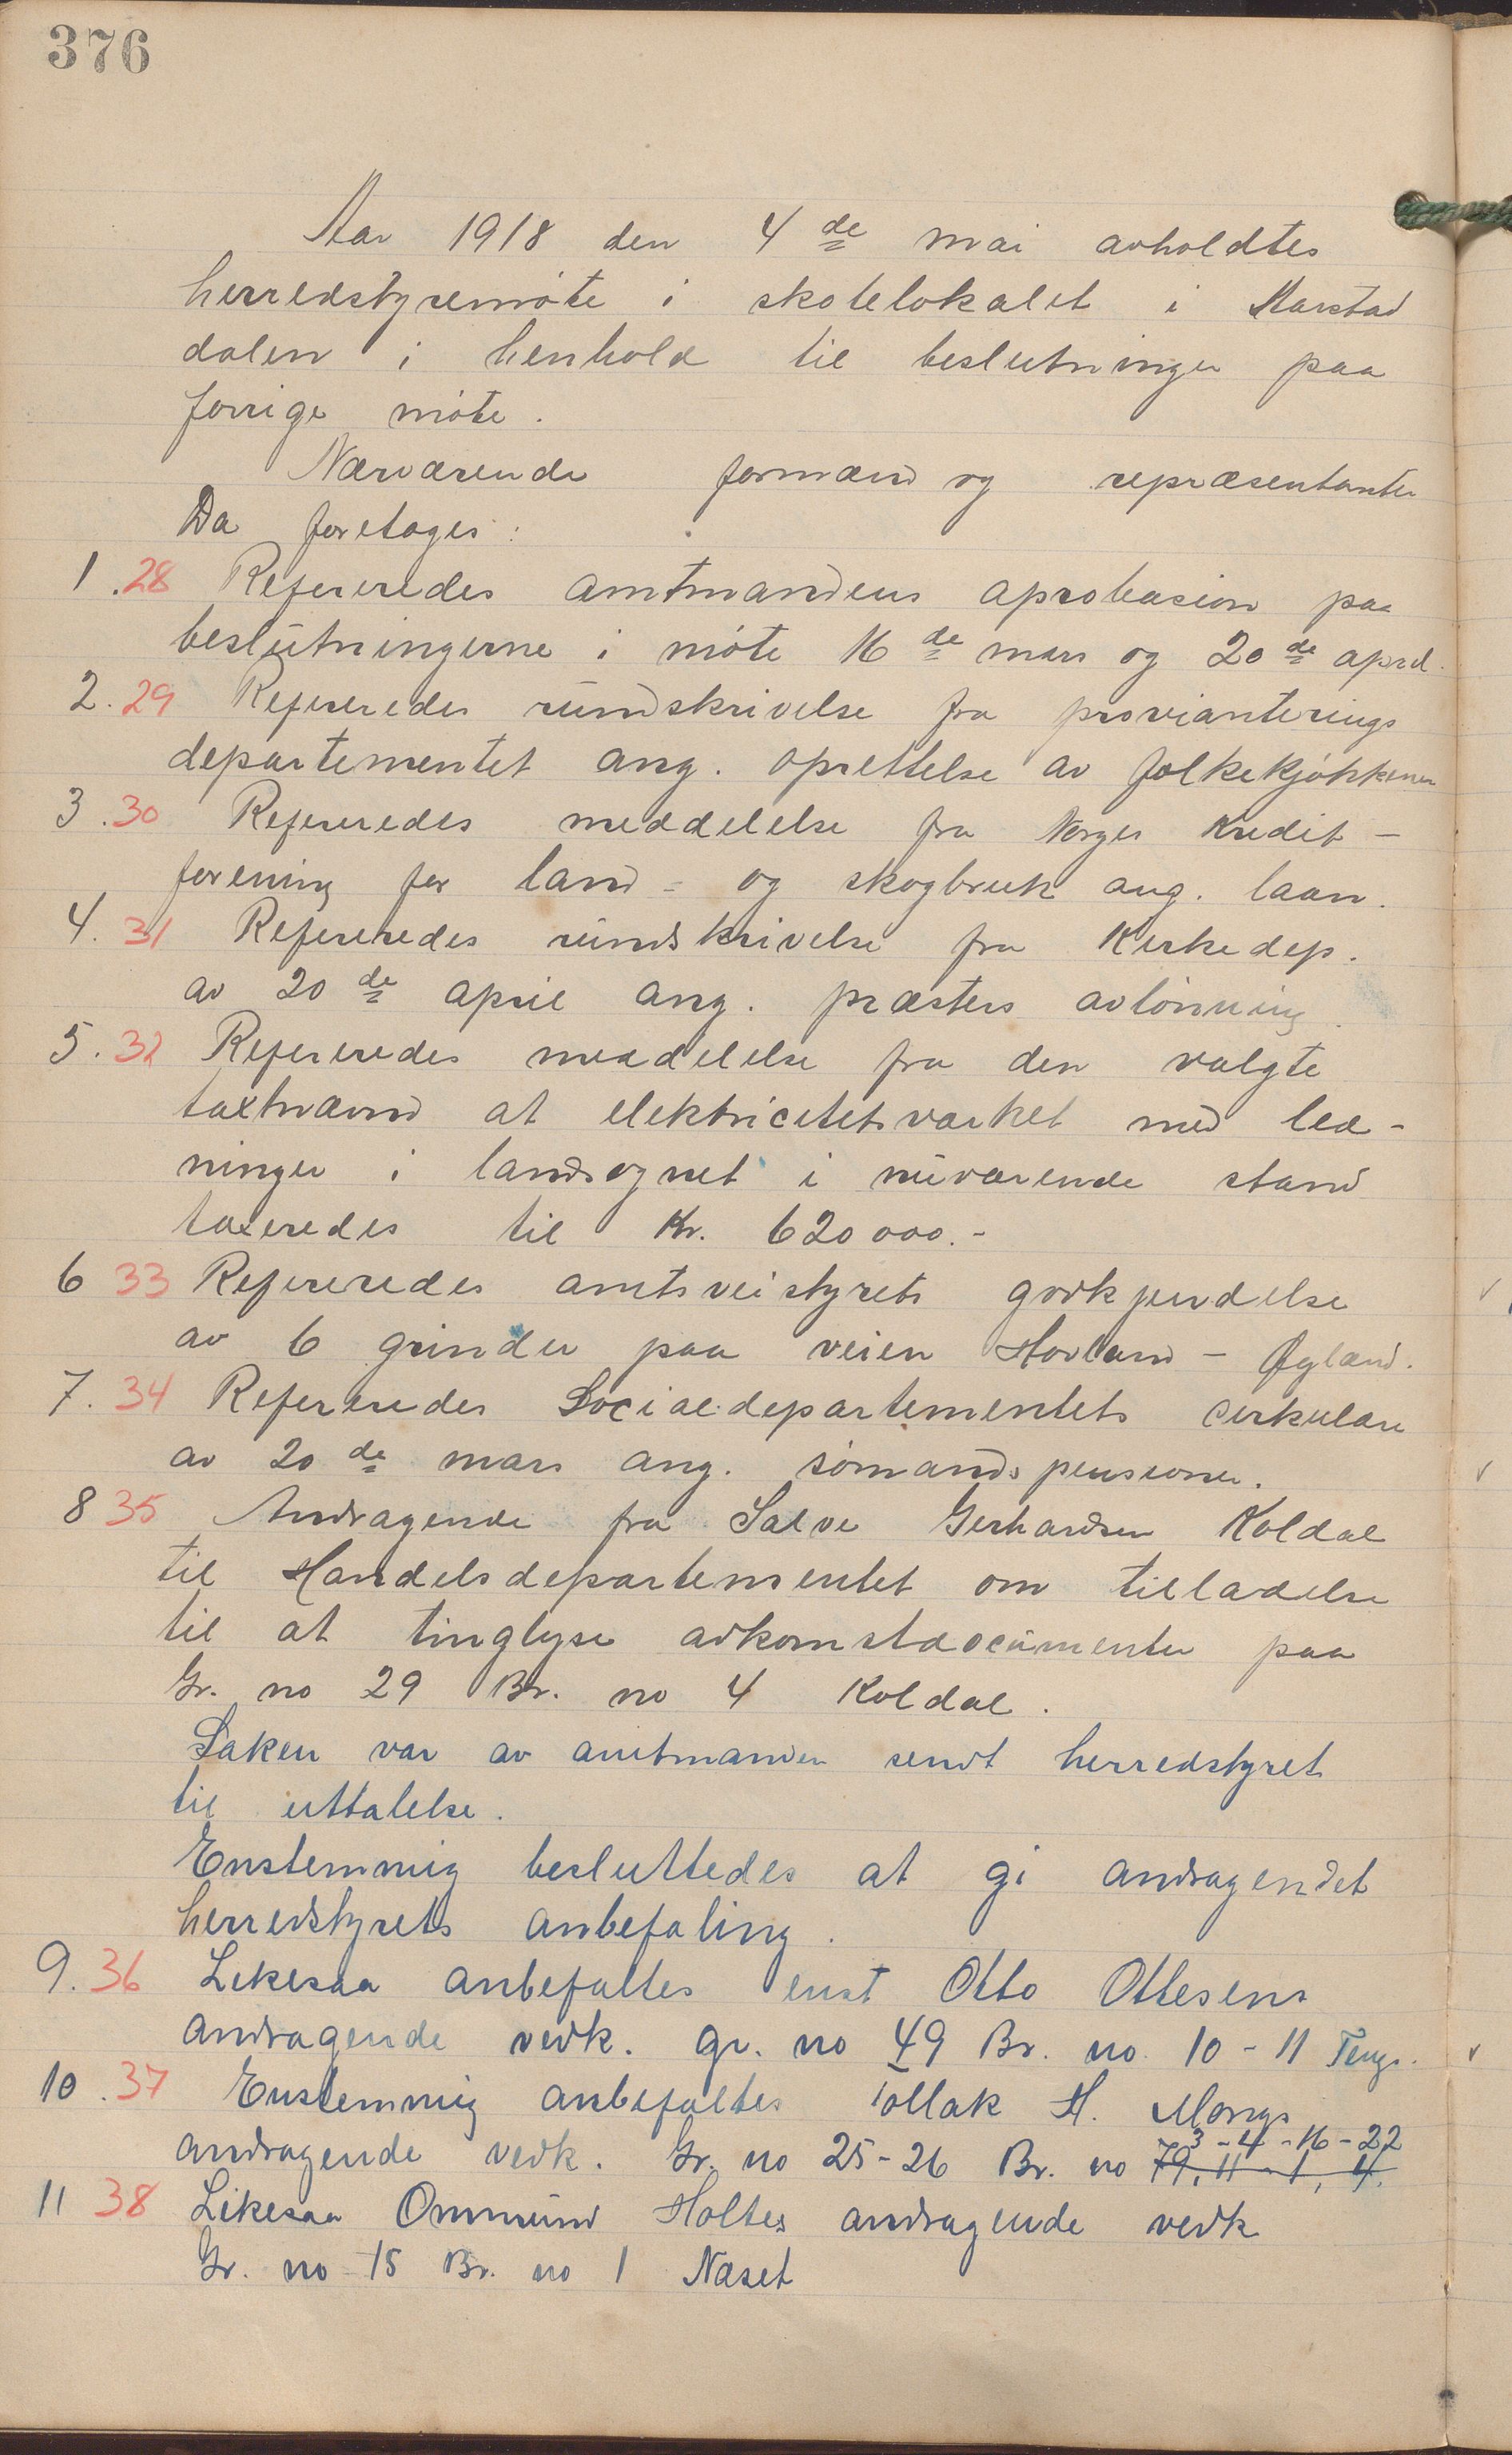 376
Aar 1918 den 4de mai avholdtes
herredstyremöte i skolelokalet i Aarstad
dalen i henhold til beslutninger paa
forrige möte.
Nærværende formænd og repræsentanter
Da foretoges:
1. 28 Refereredes amtmandens aprobasion paa
beslutningerne i möte 16de mars og 20de april.
2. 29 Refereredes rundskrivelse fra provianterings
departementet ang. oprettelse av folkekjökkener
3. 30 Refereredes meddelelse fra Norges Kredit-
forening for land- og skogbruk ang. laan.
4. 31 Refereredes rundskrivelse fra Kirkedep.
av 20de april ang. præsters avlönning.
5. 32 Refereredes meddelelse fra den valgte
taxtnævnd at elektricitetsværket med led-
ninger i landsognet i nuværende stand
taxeredes til Kr. 620 000.-
6 33 Refereredes amtsveistyrets godkjendelse
av 6 grinder paa veien Hovland - Øgland.
7. 34 Refereredes Socialdepartementets cirkulære
av 20de mars ang. sömandspensioner.
8 35 Andragende fra Salve Gerhardsen Koldal
til Handelsdepartementet om tilladelse
til at tinglyse adkomstdocumenter paa
Gr. no 29 Br. no 4 Koldal.
Saken var av amtmanden sendt herredstyret
til uttalelse.
Enstemmig besluttedes at gi andragendet
herredstyrets anbefaling.
9. 36 Likesaa anbefaltes enst Otto Ottesens
andragende vedk. gr. no 49 Br. no. 10 - 11 Tengs.
10. 37 Enstemmig anbefaltes Tollak H. Mongs
3 - 4 - 16 - 22
andragende vedk. Gr. no 25-26 Br. no 79, 11 - 1, 4.
11 38 Likesaa Ommund Holtes andragende vedk
Gr. no 15 Br. no 1 Næset